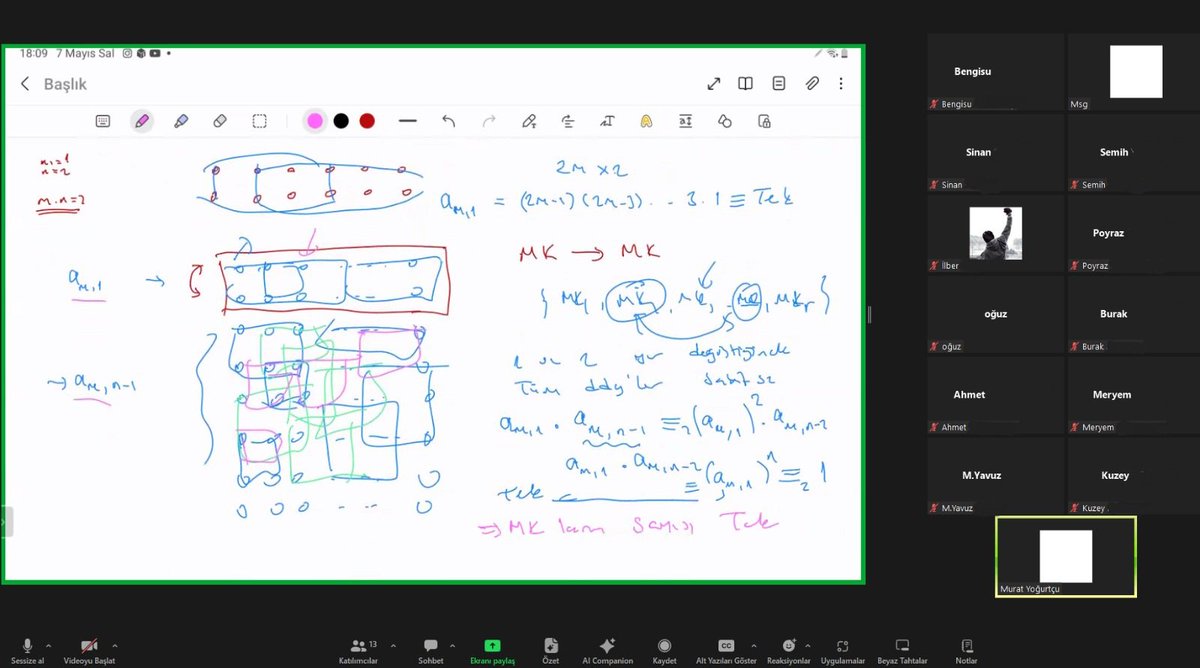 18:09 7 Mayıs Sal
Başlık
n=2
m.n=2
2m x 2
a_{m,1} = (2m-1)(2m-3)... 3.1 ≡ Tek
a_{m,1} →
MK → MK
1 ve 2
→ a_{m,n-1}
a_{m,1} . a_{m,n-1} ≡_2 (a_{m,1})^2 . a_{m,n-2}
a_{m,1} . a_{m,n-2}
≡ (a_{m,1})^n ≡_2 1
Tek
⇒ MK ların sayısı Tek
Bengisu
Bengisu
Msg
Sinan
Sinan
Semih
Semih
İlber
Poyraz
Poyraz
oğuz
oğuz
Burak
Burak
Ahmet
Ahmet
Meryem
Meryem
M.Yavuz
M.Yavuz
Kuzey
Kuzey
Murat Yoğurtçu
Sessize al
Videoyu Başlat
13
Katılımcılar
Sohbet
Ekranı paylaş
Özet
AI Companion
Kaydet
CC
Alt Yazıları Göster
Reaksiyonlar
Uygulamalar
Beyaz Tahtalar
Notlar